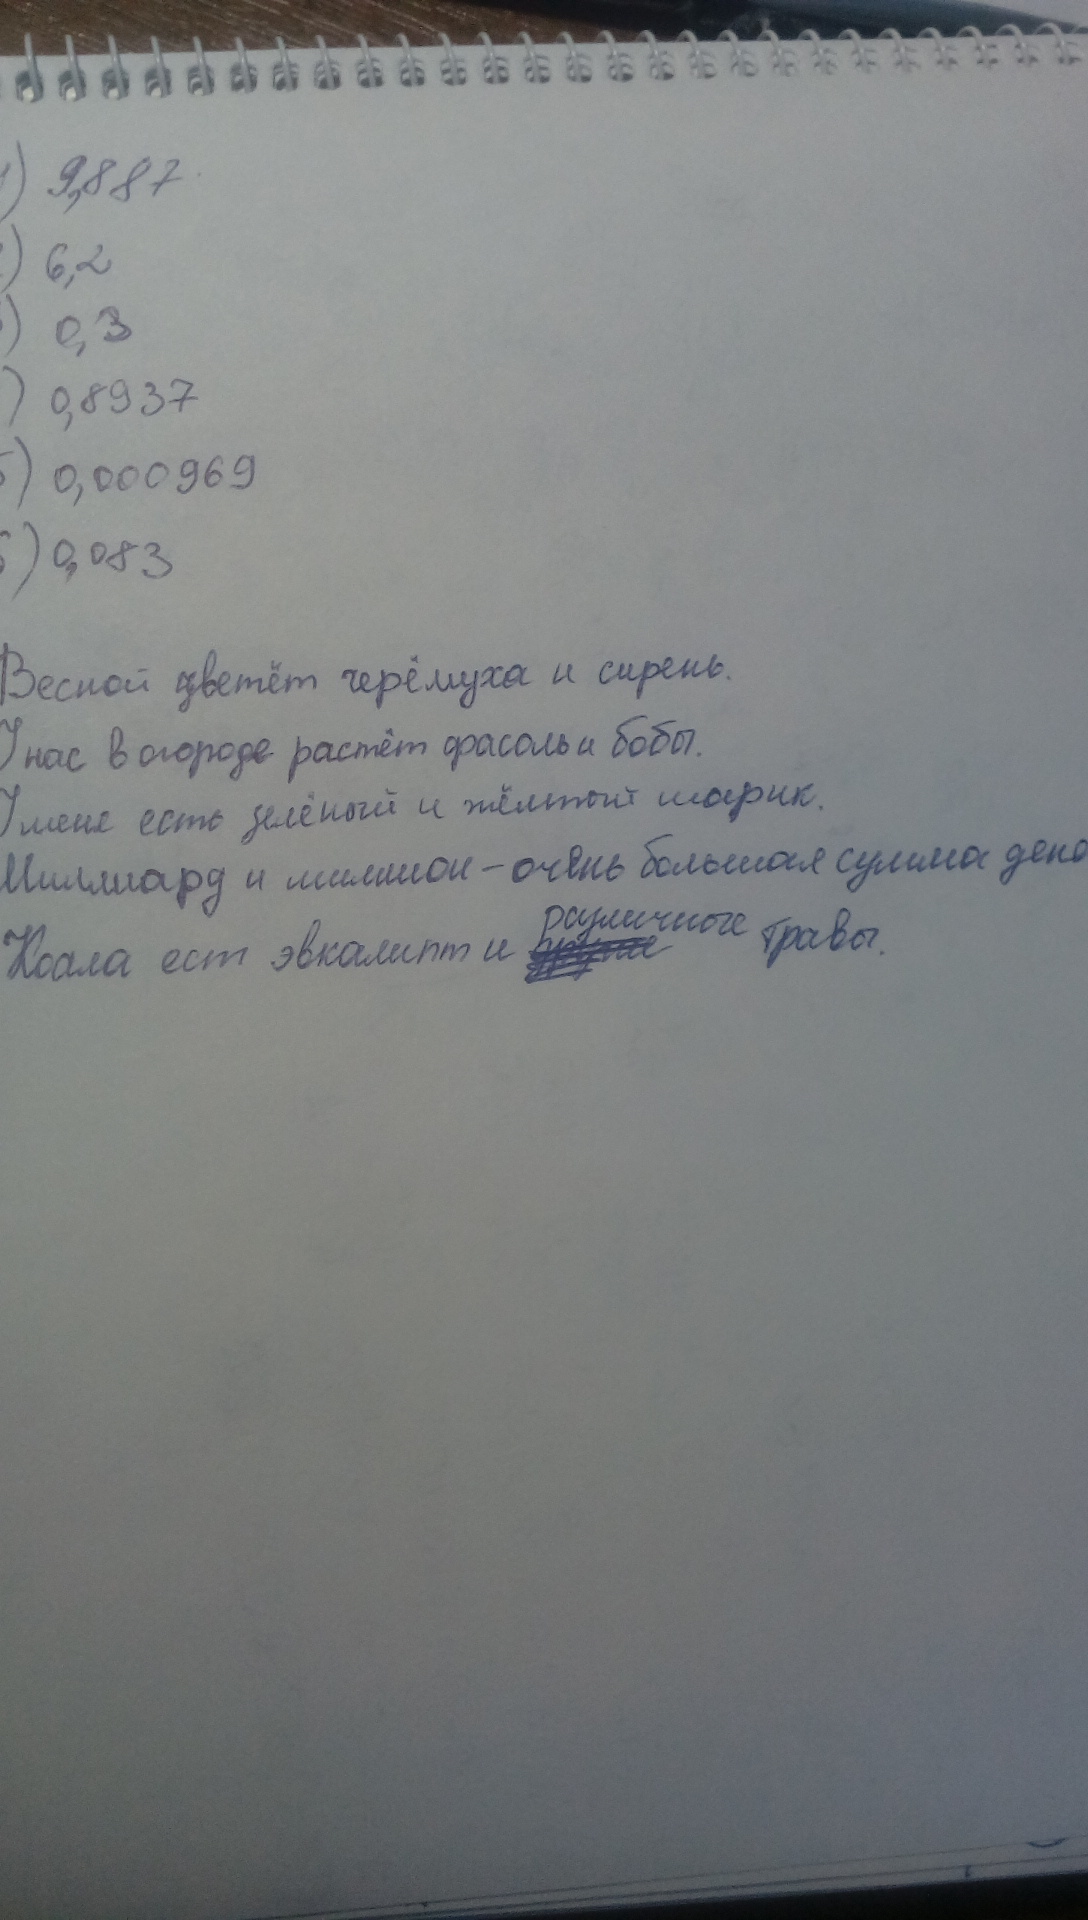 ) 9,887
) 6,2
) 0,3
) 0,8937
5) 0,000969
6) 0,083
Весной цветёт черёмуха и сирень.
У нас в огороде растёт фасоль и бобы.
У меня есть зелёный и жёлтый шарик.
Миллиард и миллион – очень большая сумма дено
Коала ест эвкалипт и различные травы.